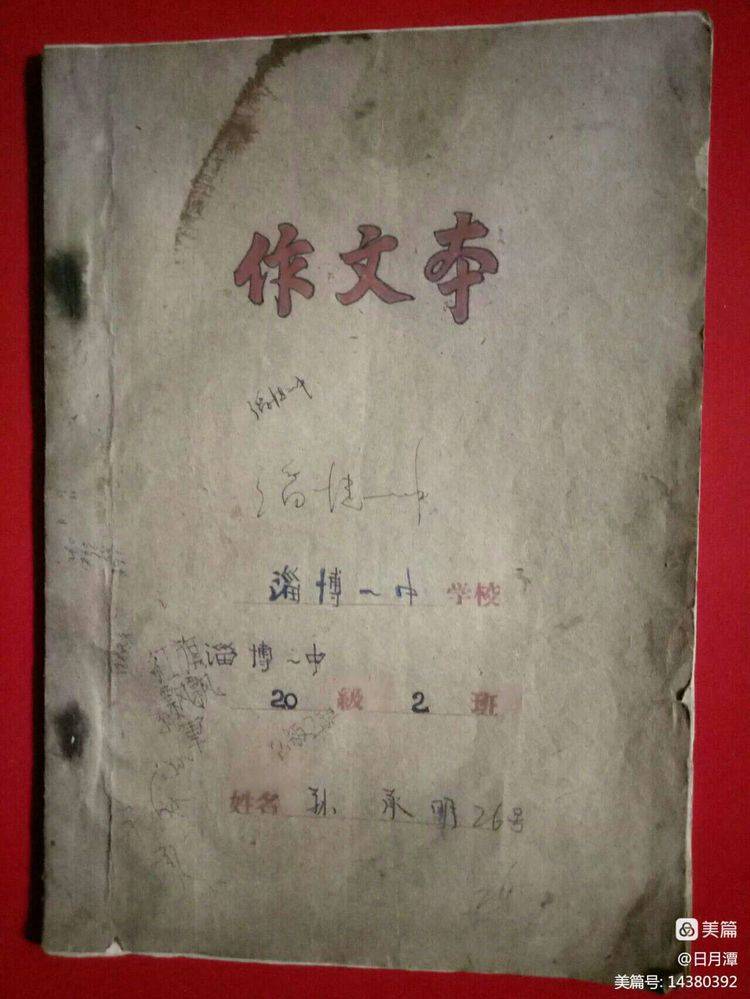 作文本
淄博一中
淄博一中
淄博一中学校
淄博一中
20 級 2 班
姓名 孙承明 26号
26
美篇
@日月潭
美篇号: 14380392